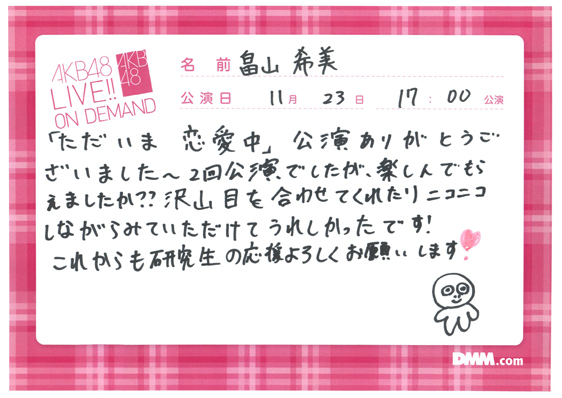 AKB48
LIVE!!
ON DEMAND
AKB
48
名 前 畠山 希美
公演日 11月 23日 17:00 公演
「ただいま 恋愛中」公演ありがとうご
ざいました〜2回公演でしたが、楽しんでもら
えましたか??沢山目を合わせてくれたりニコニコ
しながらみていただけてうれしかったです!
これからも研究生の応援よろしくお願いします
DMM.com